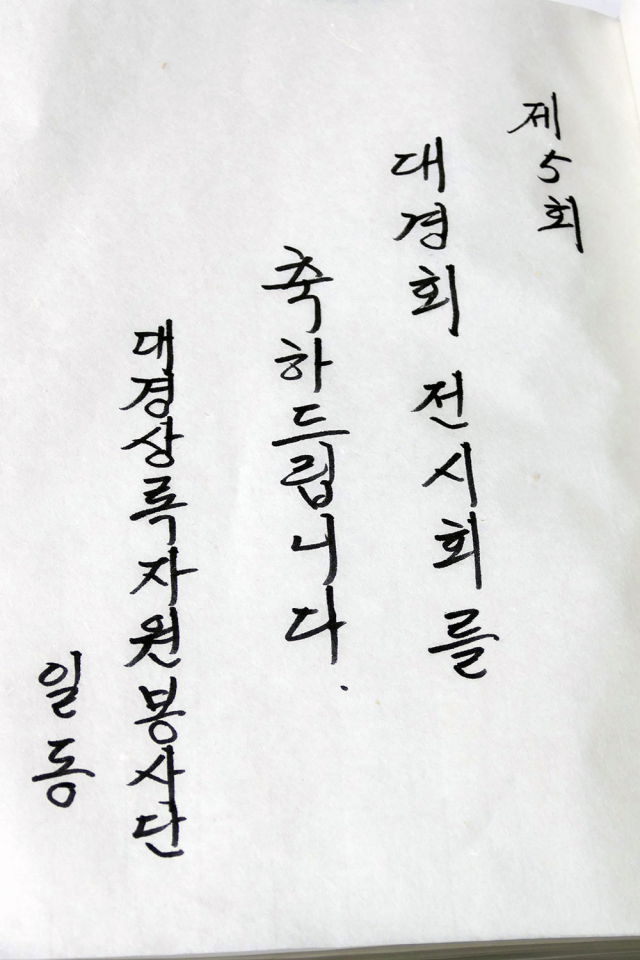 제5회
대경회 전시회를
축하드립니다.
대경상록자원봉사단
일동